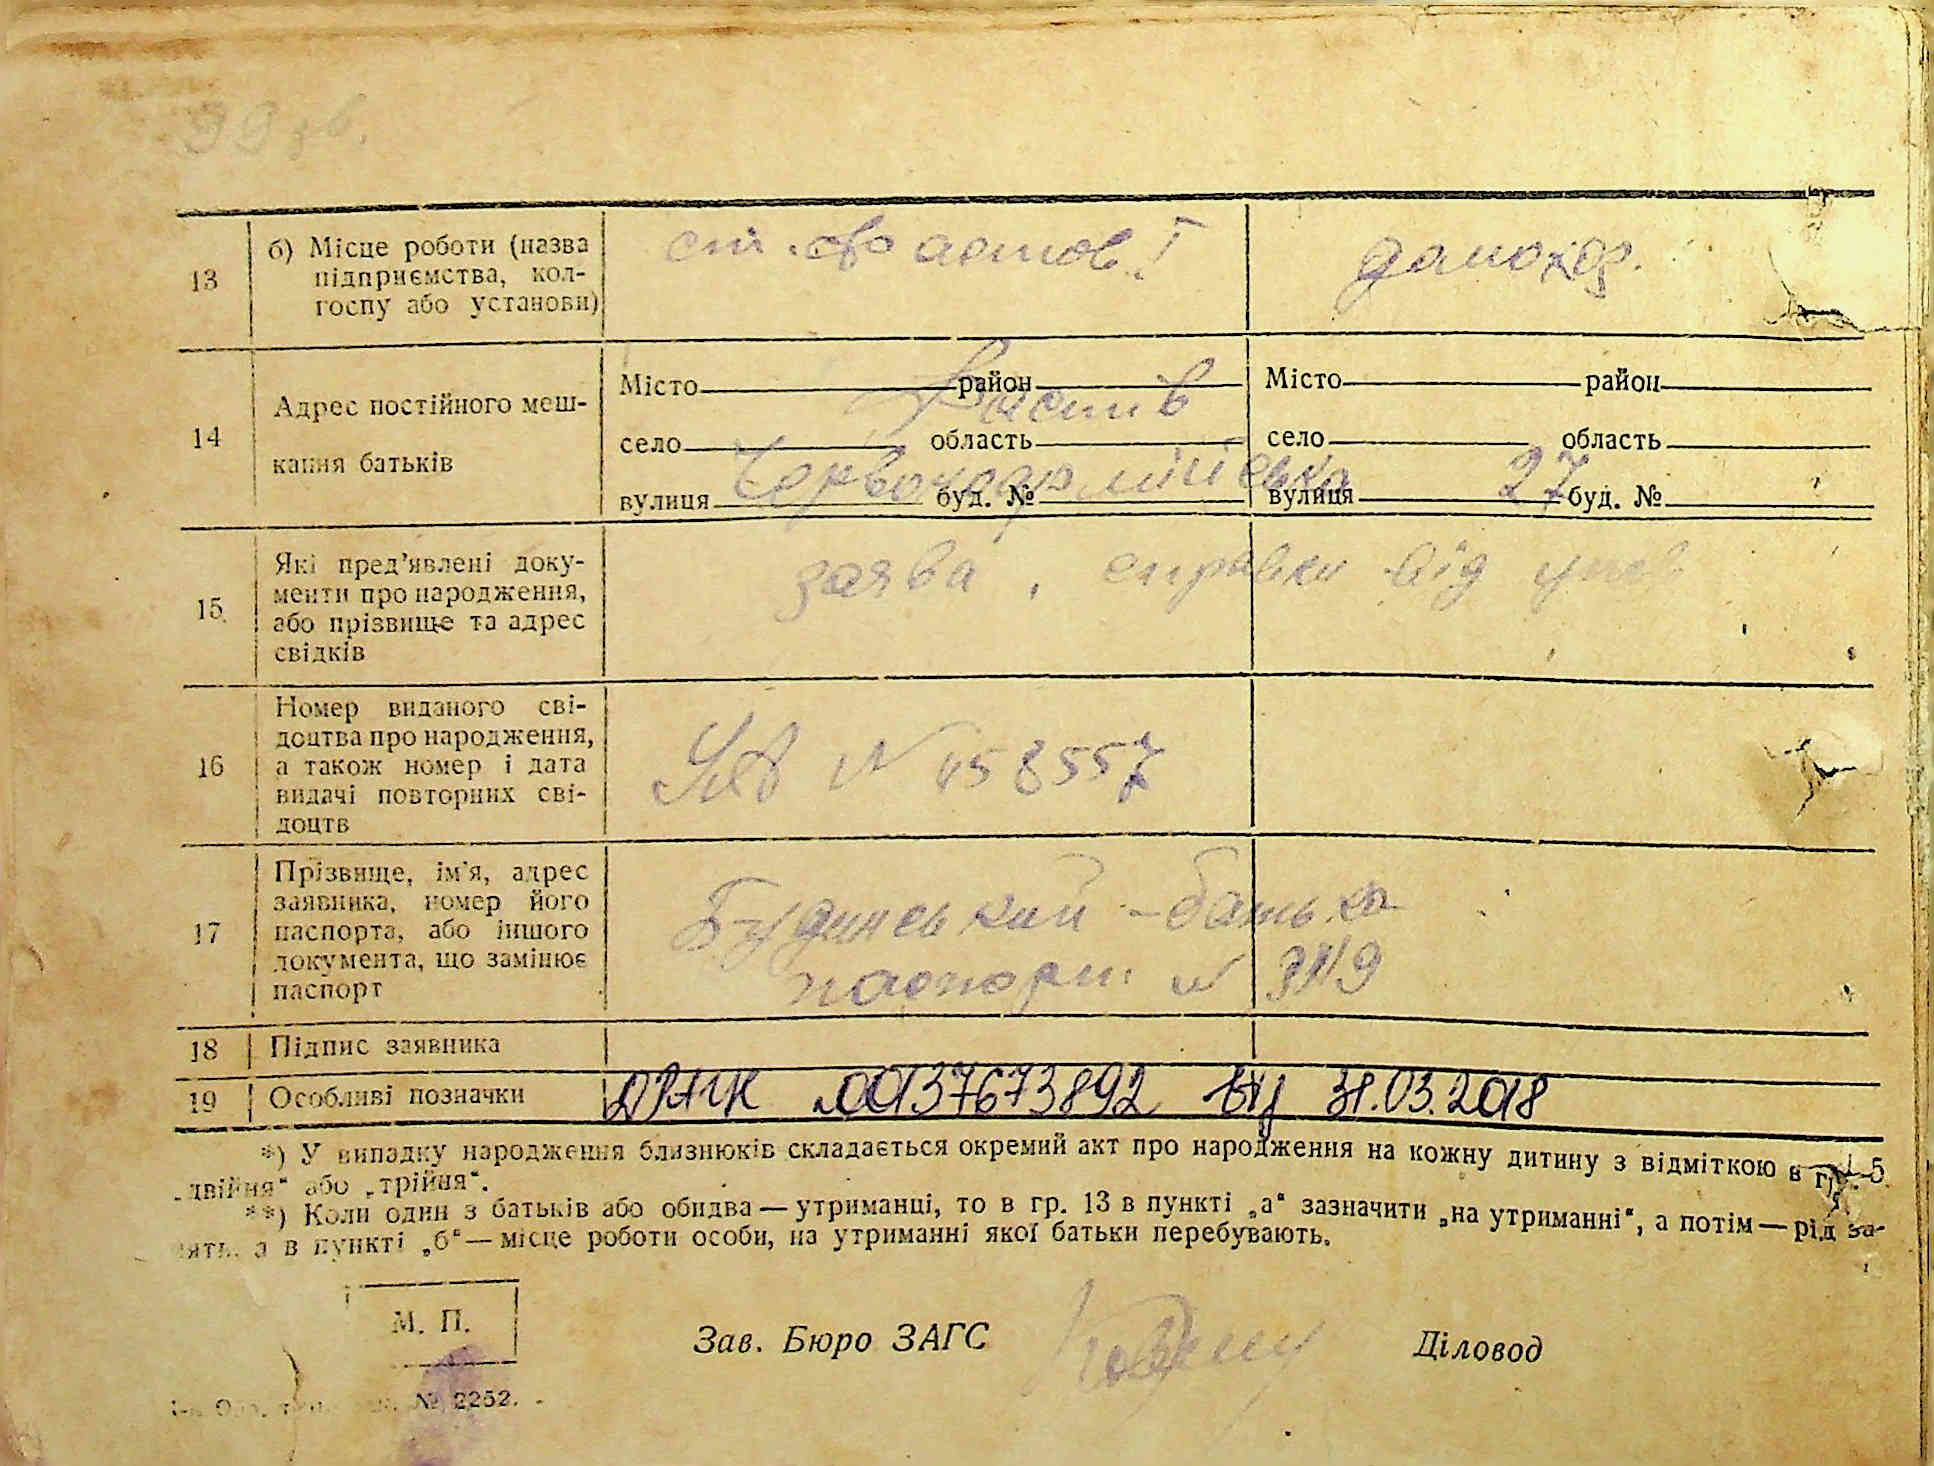 99 зв.
13
б) Місце роботи (назва
підприємства, кол-
госпу або установи)
ст. Фастов I
домохоз.
14
Адрес постійного меш-
кання батьків
Місто район
село область
вулиця буд. №
Фастів
Червоноармійська
Місто район
село область
вулиця буд. №
27
15
Які пред’явлені доку-
менти про народження,
або прізвище та адрес
свідків
заява, справки від
16
Номер виданого сві-
доцтва про народження,
а також номер і дата
видачі повторних сві-
доцтв
N 458557
17
Прізвище, ім’я, адрес
заявника, номер його
паспорта, або іншого
документа, що замінює
паспорт
Будинський - батько
паспорт N
18
Підпис заявника
19
Особливі позначки
ДРАЦС 00137673892 від 31.03.2018
*) У випадку народження близнюків складається окремий акт про народження на кожну дитину з відміткою в гр. 5
„двійня“ або „трійня“.
**) Коли один з батьків або обидва — утриманці, то в гр. 13 в пункті „а“ зазначити „на утриманні“, а потім — рід за-
нять, а в пункті „б“ — місце роботи особи, на утриманні якої батьки перебувають.
М. П.
Зав. Бюро ЗАГС
Діловод
№ 2252.